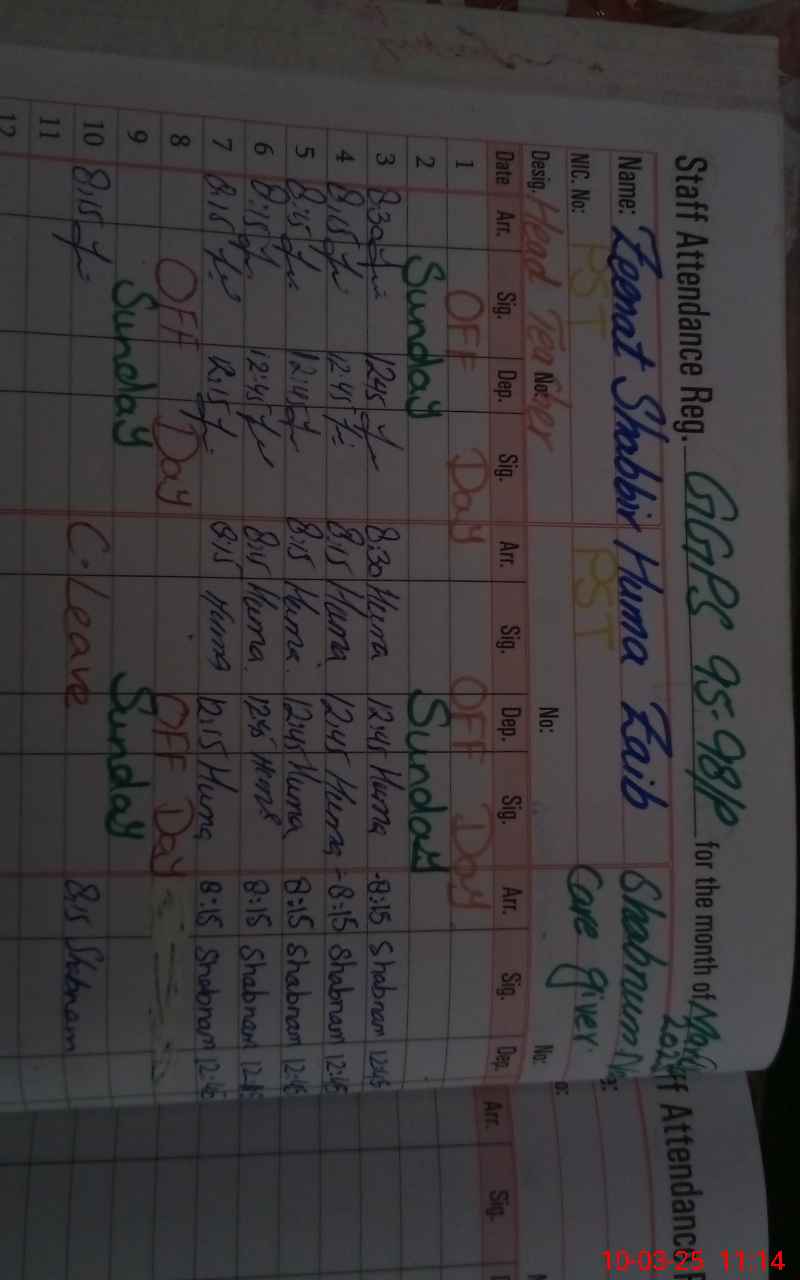 Staff Attendance Reg. GGPS 95-98/P for the month of March
Name: Zeenat Shabbir Huma Zaib Shabnum
NIC. No: PST PST Care giver
Desig. Head Teacher No: No: No:
Date Arr. Sig. Dep. Sig. Arr. Sig. Dep. Sig. Arr. Sig. Dep.
1 OFF Day OFF Day
2 Sunday Sunday
3 8:30 1245 8:30 Huma 12:45 Huma 8:15 Shabnam 12:45
4 8:15 12:45 8:15 Huma 12:45 Huma 8:15 Shabnam 12:45
5 8:15 12:45 8:15 Huma. 12:45 Huma 8:15 Shabnam 12:45
6 8:15 12:45 8:15 Huma. 12:45 Huma 8:15 Shabnam 12:45
7 8:15 12:15 8:15 Huma 12:15 Huma 8:15 Shabnam 12:45
8 OFF Day OFF Day
9 Sunday Sunday
10 8:15 C. Leave 8:15 Shabnam
11
12
ff Attendance
Arr. Sig.
10-03-25 11:14